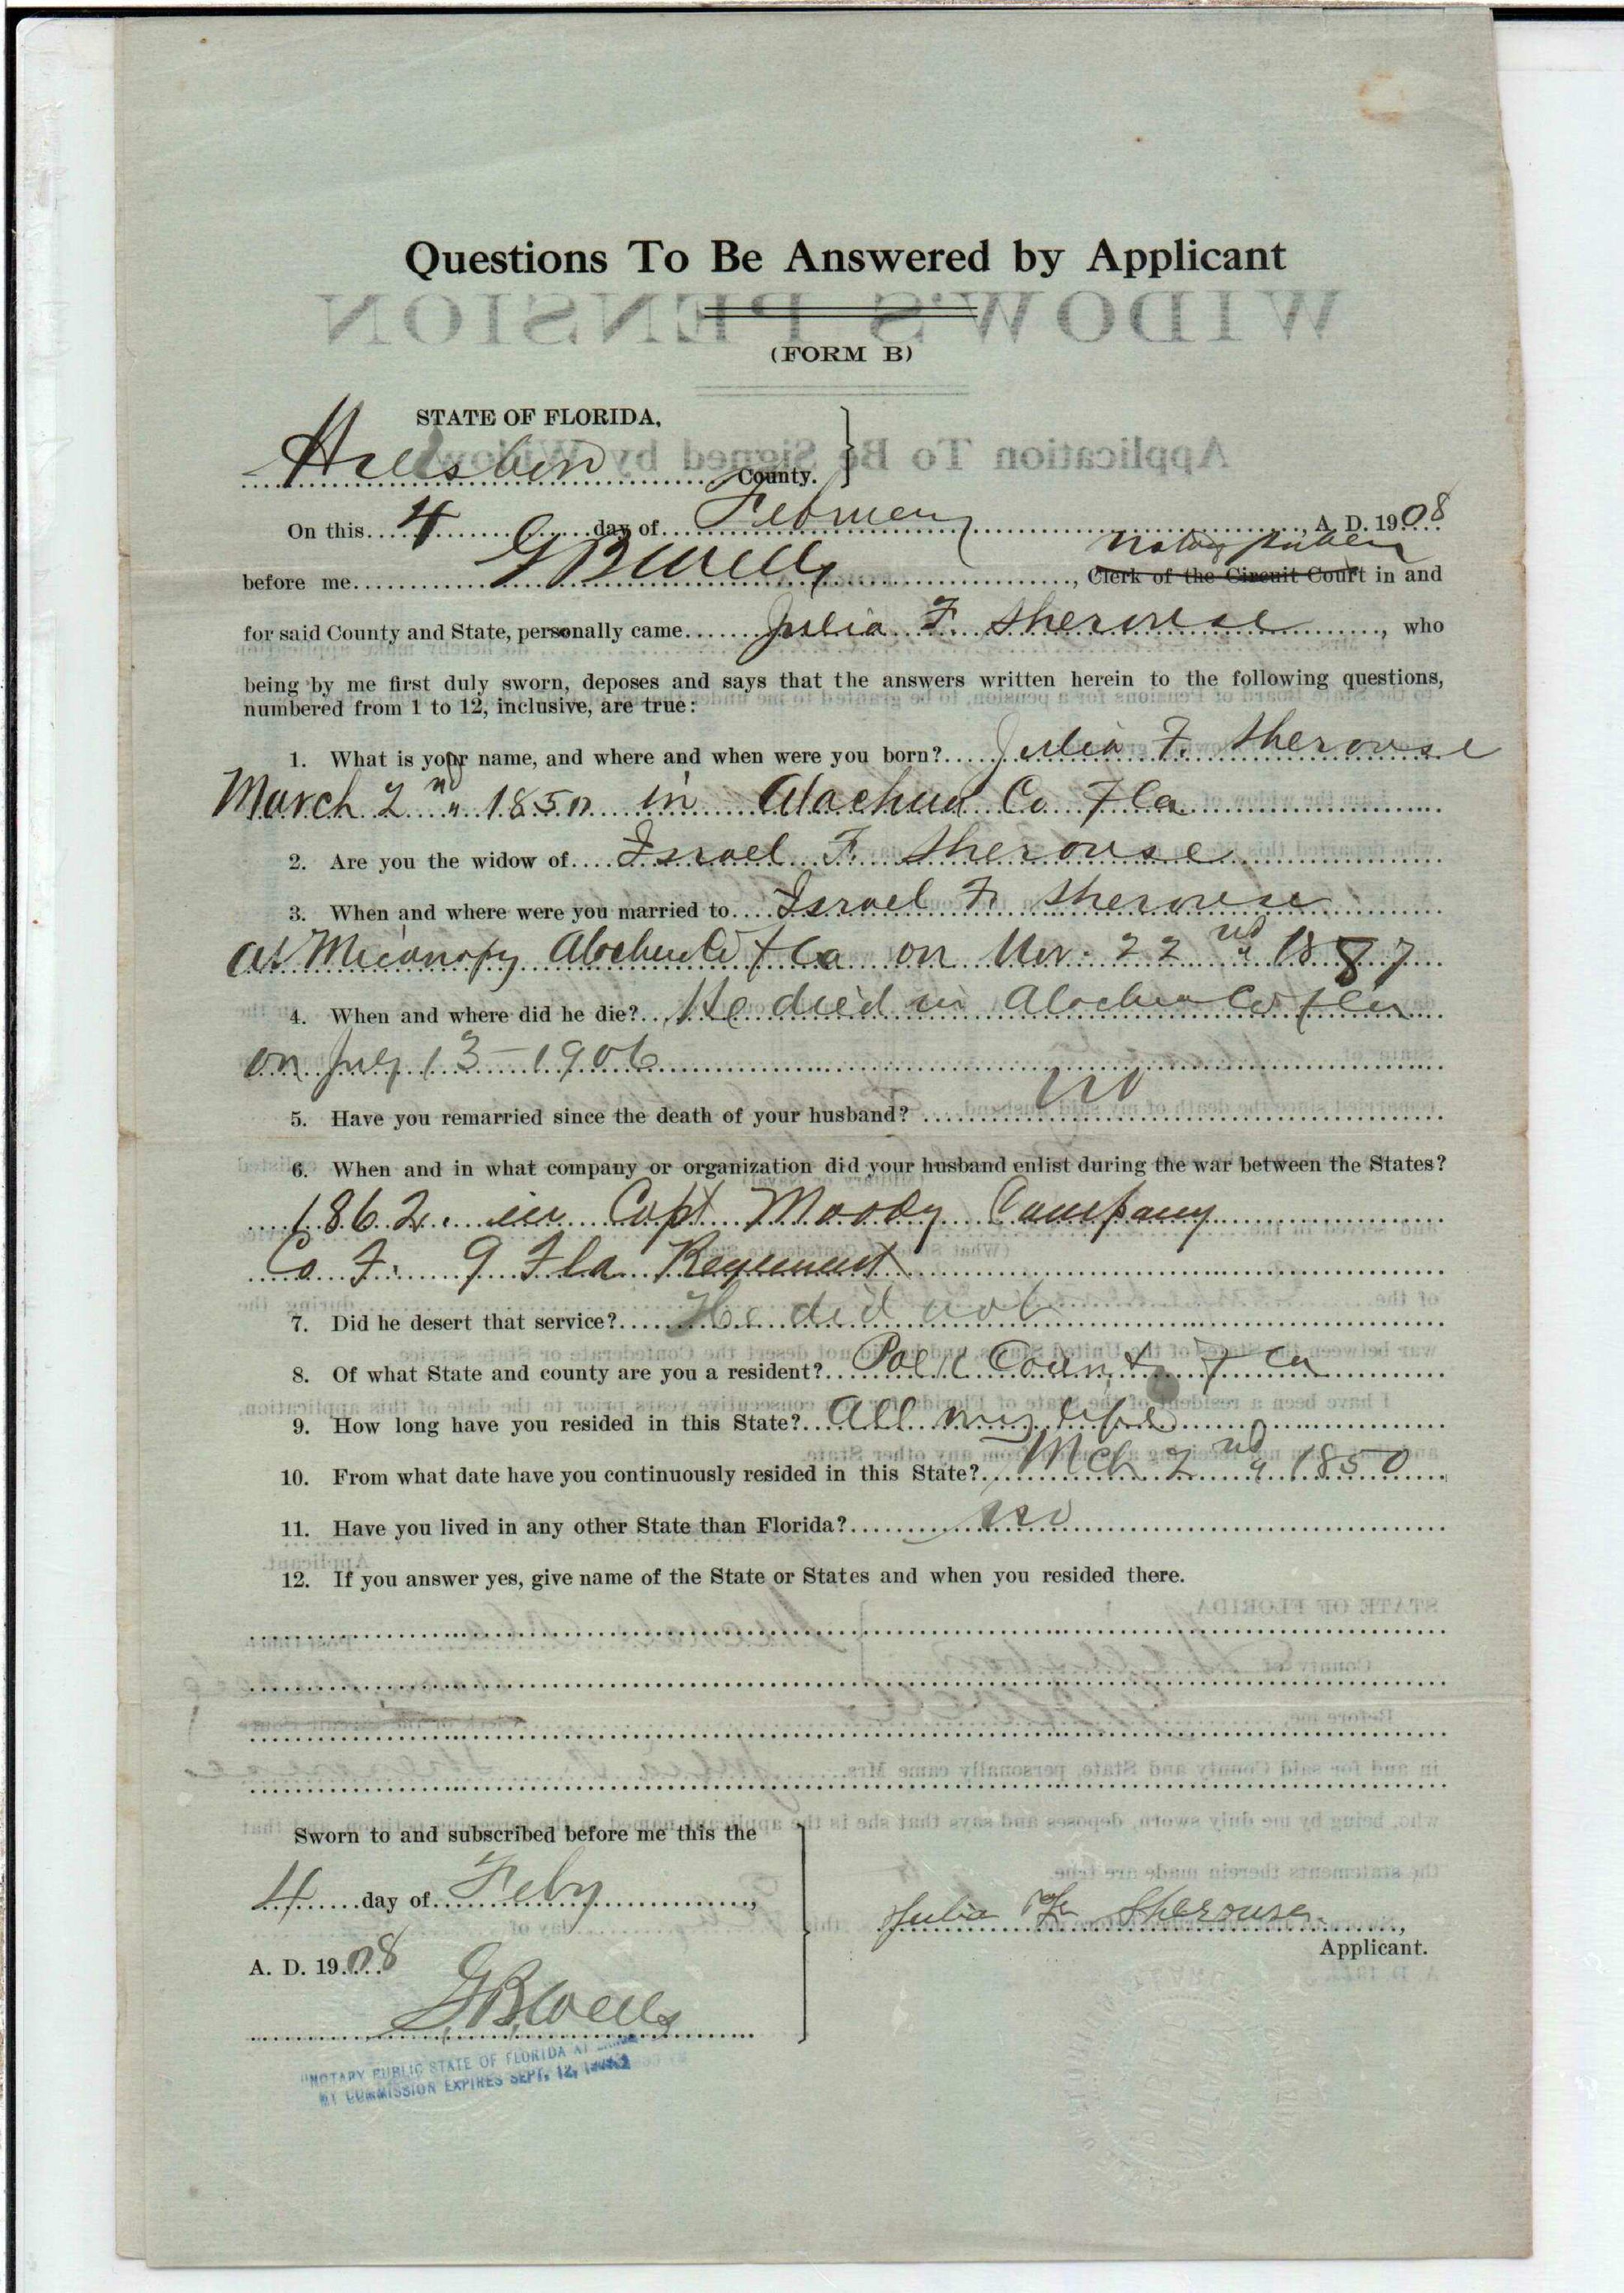 Questions To Be Answered by Applicant
(FORM B)
STATE OF FLORIDA,
Hillsboro County.
On this 4 day of February A. D. 1908
before me G B Wells, Notary Public Clerk of the Circuit Court in and
for said County and State, personally came Julia F. Sherouse, who
being by me first duly sworn, deposes and says that the answers written herein to the following questions,
numbered from 1 to 12, inclusive, are true:
1. What is your name, and where and when were you born? Julia F. Sherouse
March 2nd 1850 in Alachua Co Fla
2. Are you the widow of Israel F. Sherouse
3. When and where were you married to Israel F. Sherouse
At Micanopy Alachua Co Fla on Nov. 22nd 1887
4. When and where did he die? He died in Alachua Co Fla
on July 13-1906
5. Have you remarried since the death of your husband? no
6. When and in what company or organization did your husband enlist during the war between the States?
1862. in Capt Moody Company
Co F. 9 Fla Regement
7. Did he desert that service? He did not
8. Of what State and county are you a resident? Polk County Fla
9. How long have you resided in this State? All my life
10. From what date have you continuously resided in this State? Mch 2nd 1850
11. Have you lived in any other State than Florida? no
12. If you answer yes, give name of the State or States and when you resided there.
Sworn to and subscribed before me this the
4 day of Feby,
A. D. 1908
G. B. Wells
Julia F. Sherouse,
Applicant.
NOTARY PUBLIC STATE OF FLORIDA AT
MY COMMISSION EXPIRES SEPT. 12,